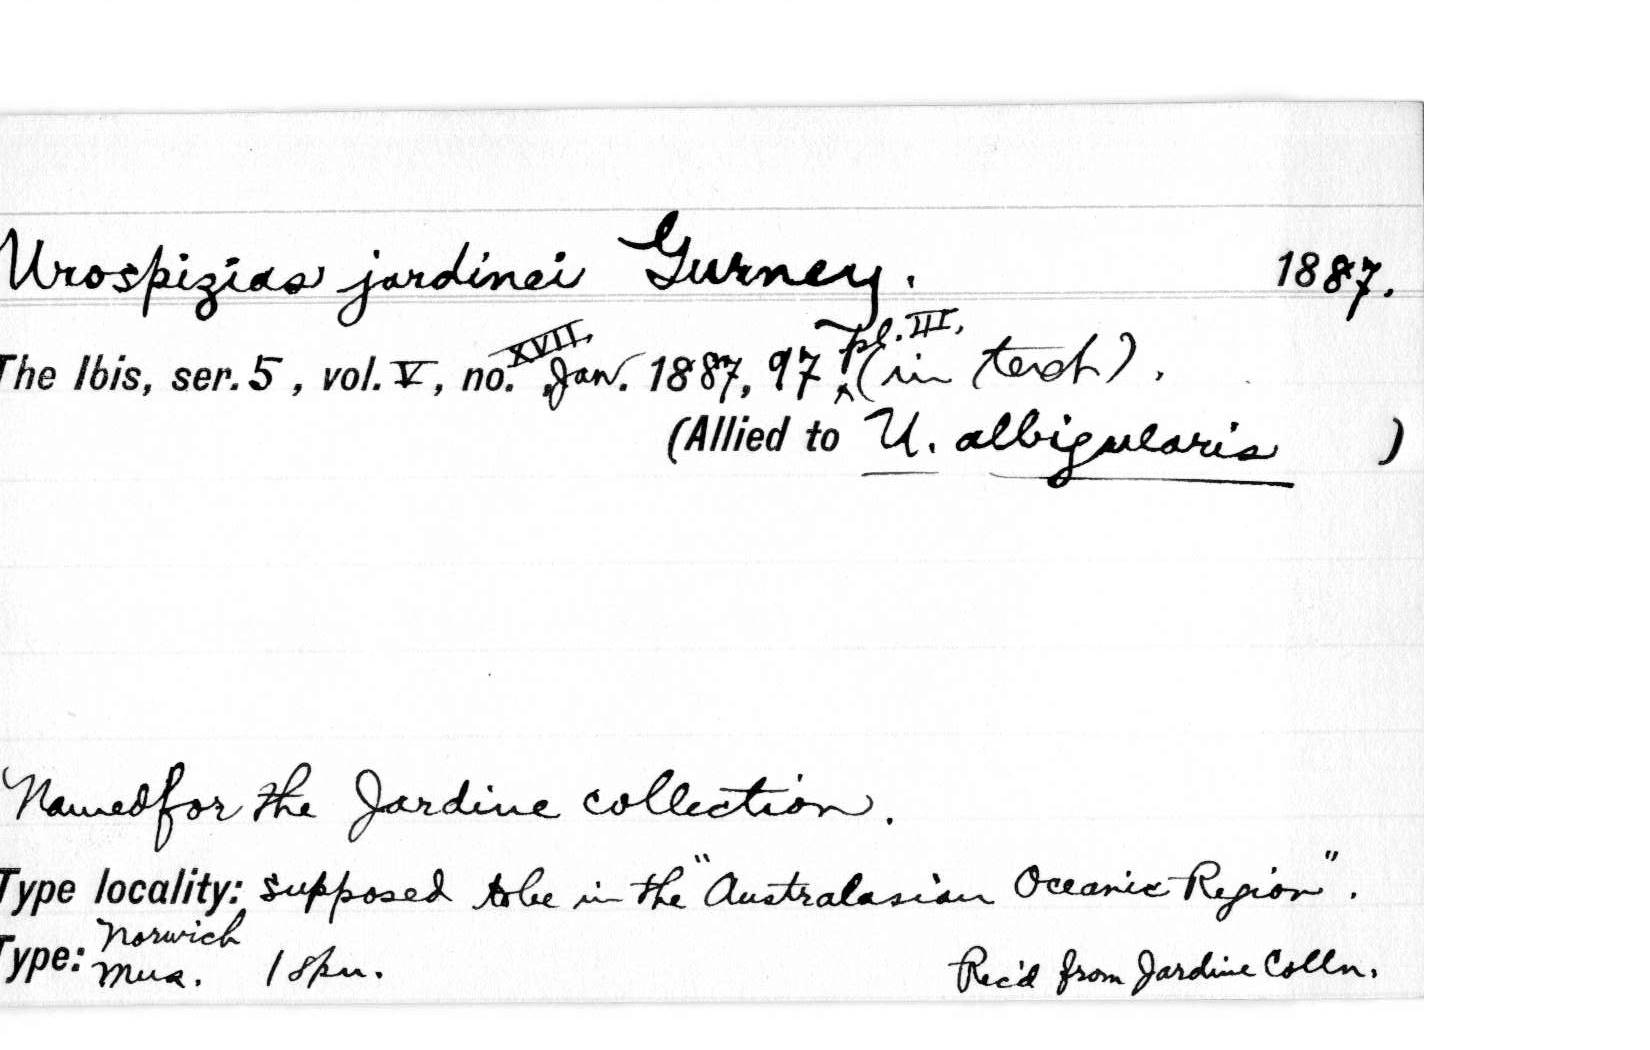 Urospizias jardinei Gurney. 1887.
The Ibis, ser. 5, vol. V, no. XVII, Jan. 1887, 97, pl. III, (in text).
(Allied to U. albigularis )
Named for the Jardine collection.
Type locality: supposed to be in the "Australasian Oceanic Region".
Type: Norwich Mus. 1 spn. Rec'd from Jardine Colln.